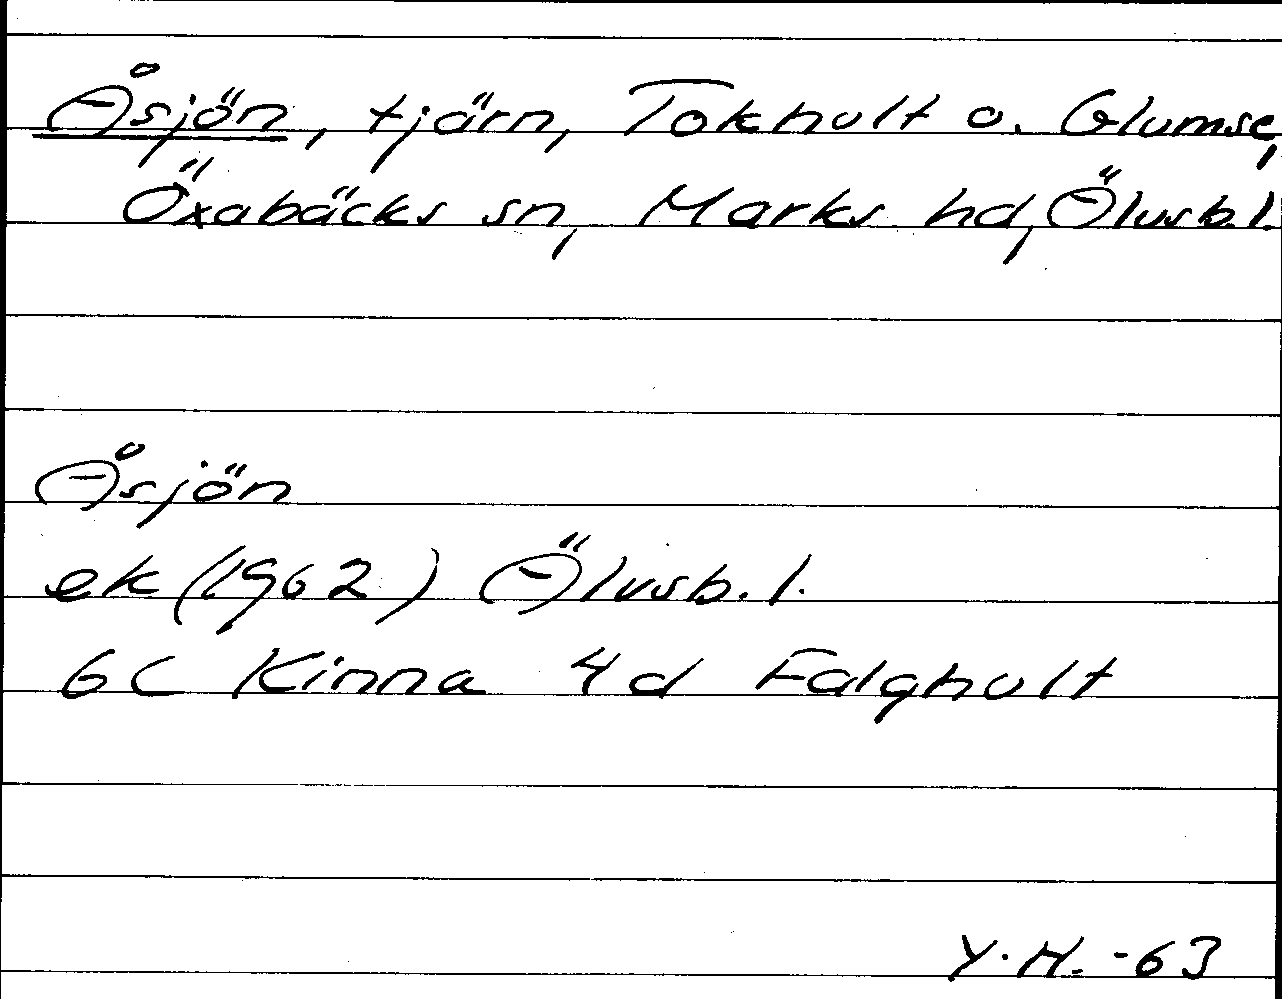 Åsjön, tjärn, Tokhult o. Glumse,
Öxabäcks sn, Marks hd, Älvsb. l.
Åsjön
ek (1962) Älvsb. l.
6C Kinna 4d Falghult
Y. H. -63